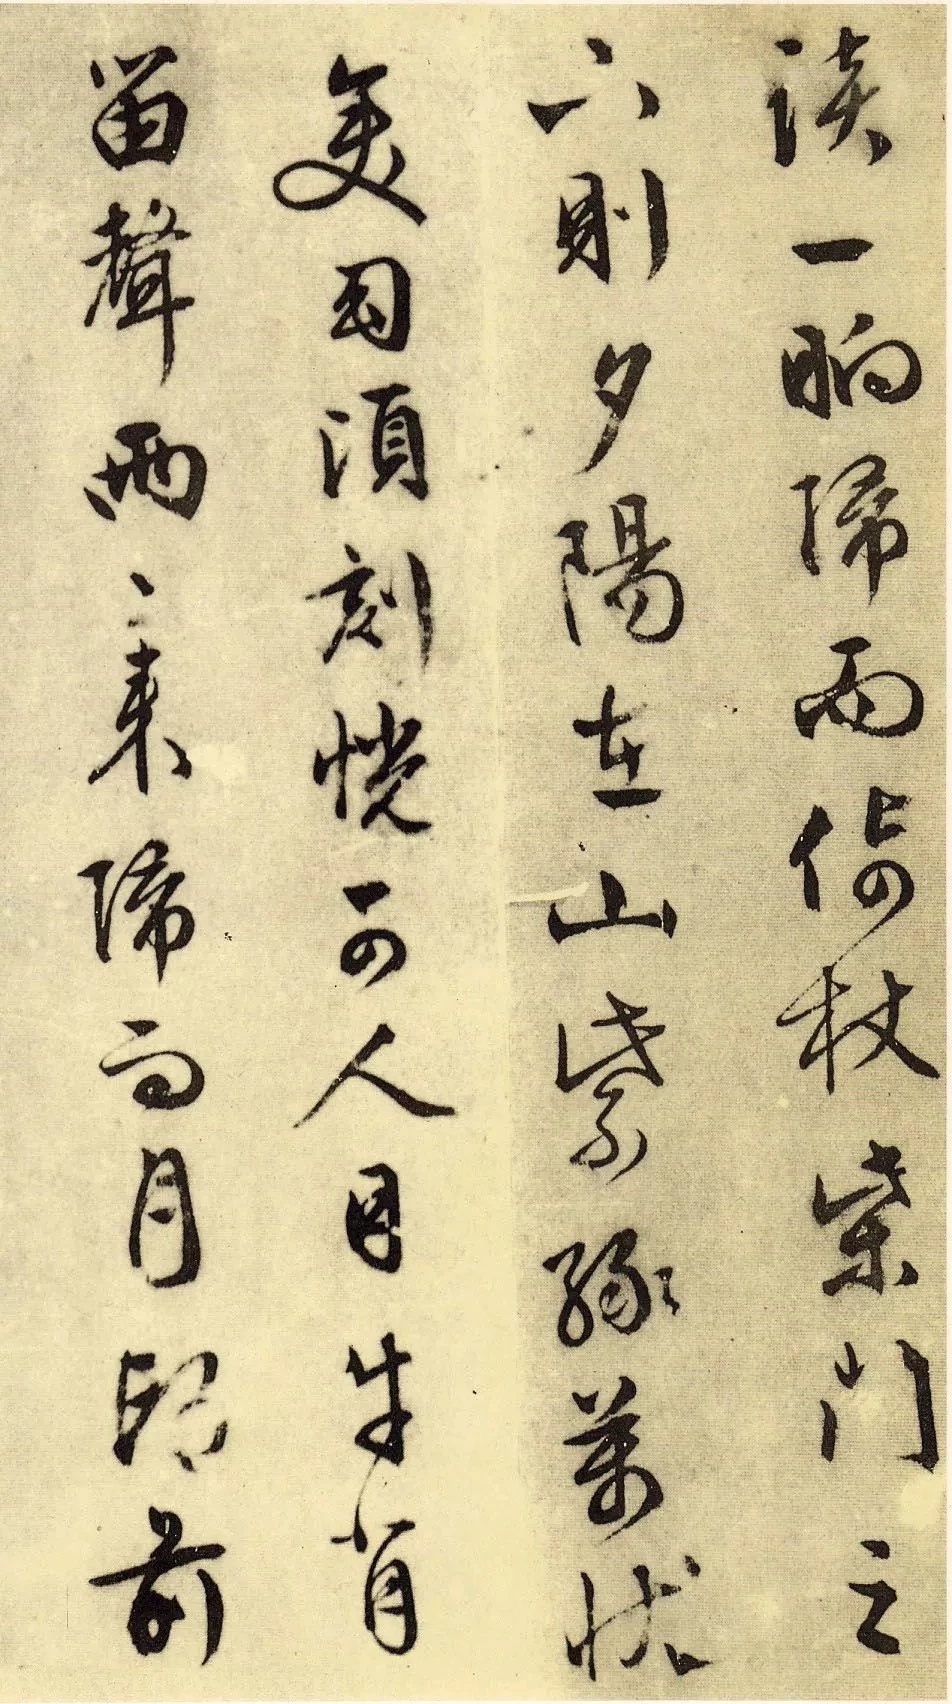 談一晌歸而倚杖柴門之
下則夕陽在山紫綠萬狀
變幻頃刻恍可人目牛背
笛聲兩〻來歸而月印前